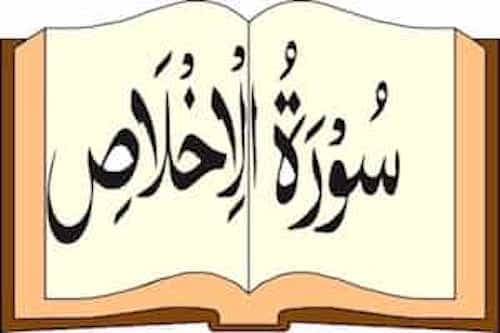 سُوْرَةُ الْاِخْلَاصِ